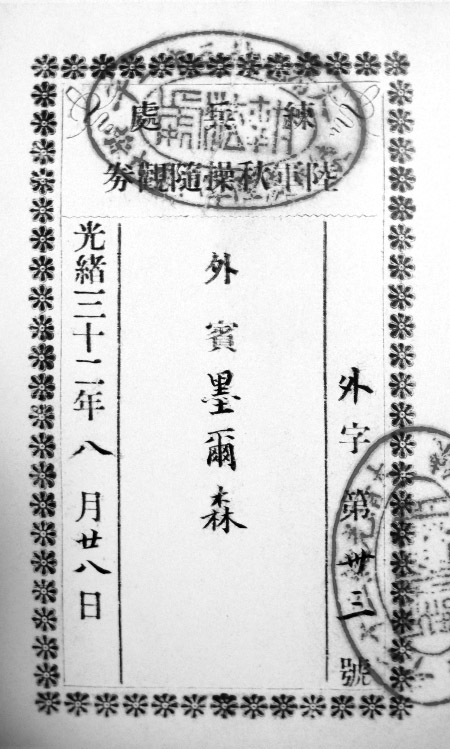 練兵處
陸軍秋操隨觀券
外字第卅三號
外賓墨爾森
光緒三十二年八月廿八日